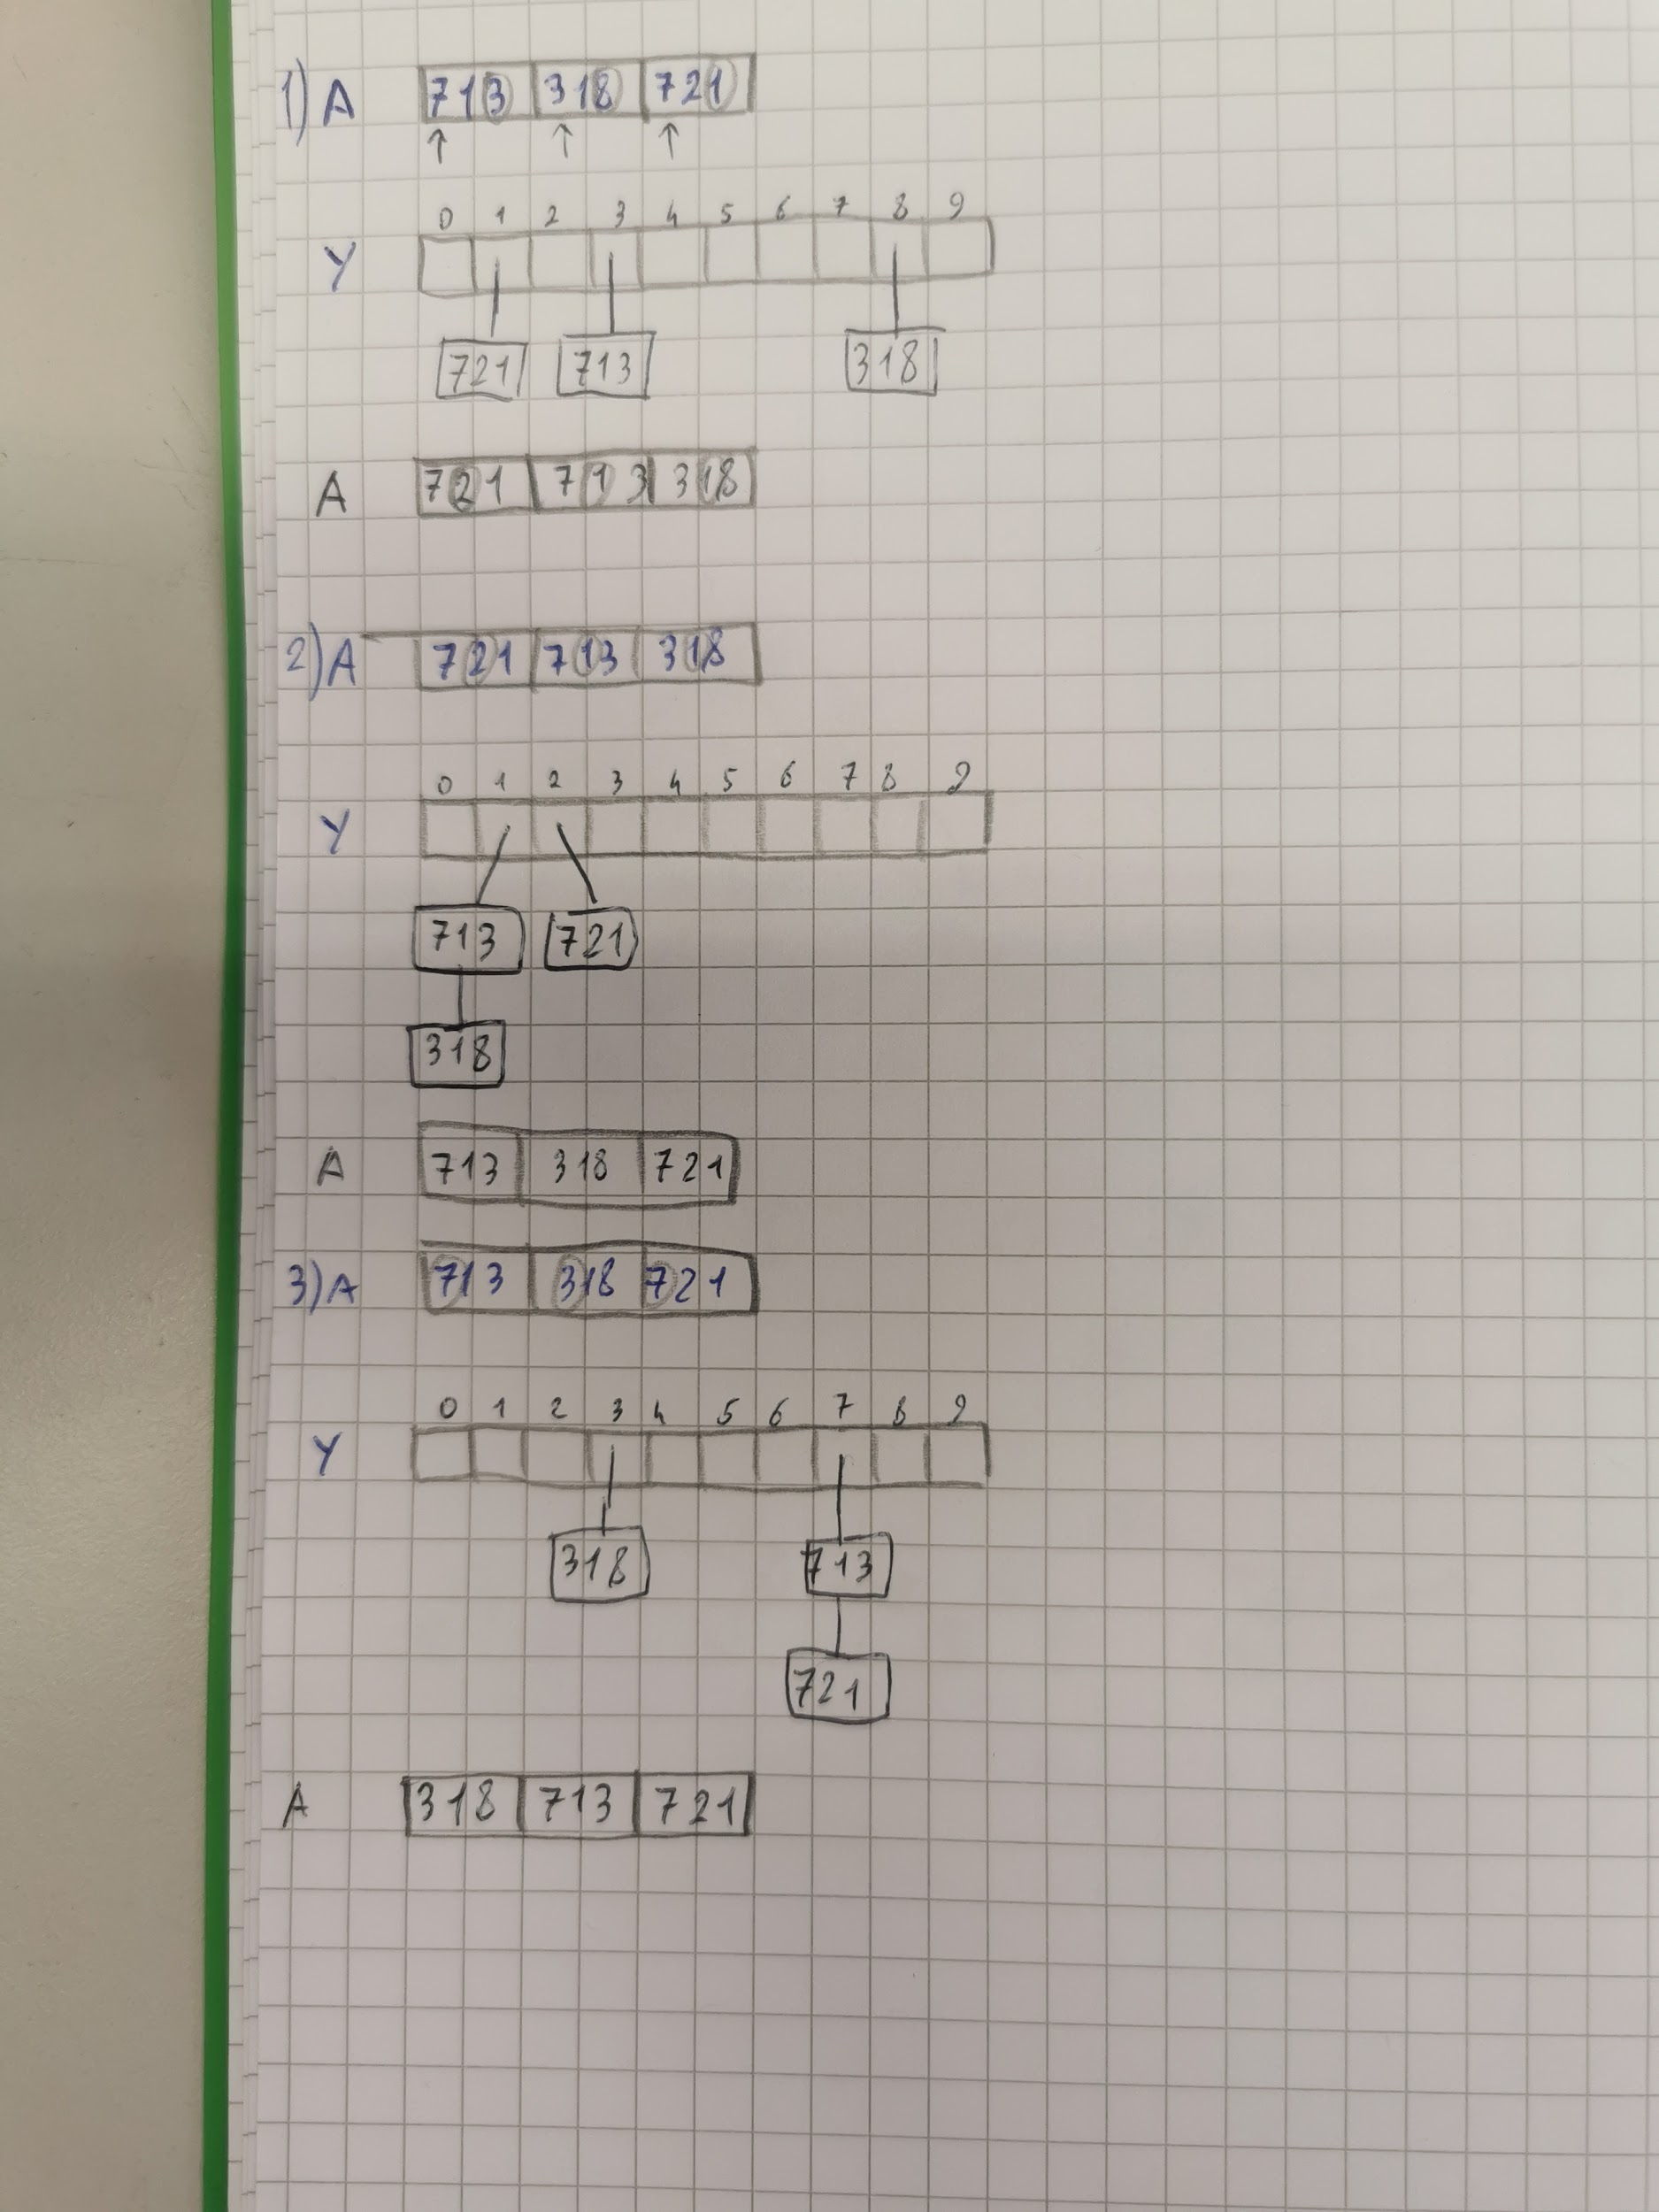 1) A 713 318 721
↑ ↑ ↑
0 1 2 3 4 5 6 7 8 9
Y
721 713 318
A 721 713 318
2) A 721 713 318
0 1 2 3 4 5 6 7 8 9
Y
713 721
318
A 713 318 721
3) A 713 318 721
0 1 2 3 4 5 6 7 8 9
Y
318 713
721
A 318 713 721